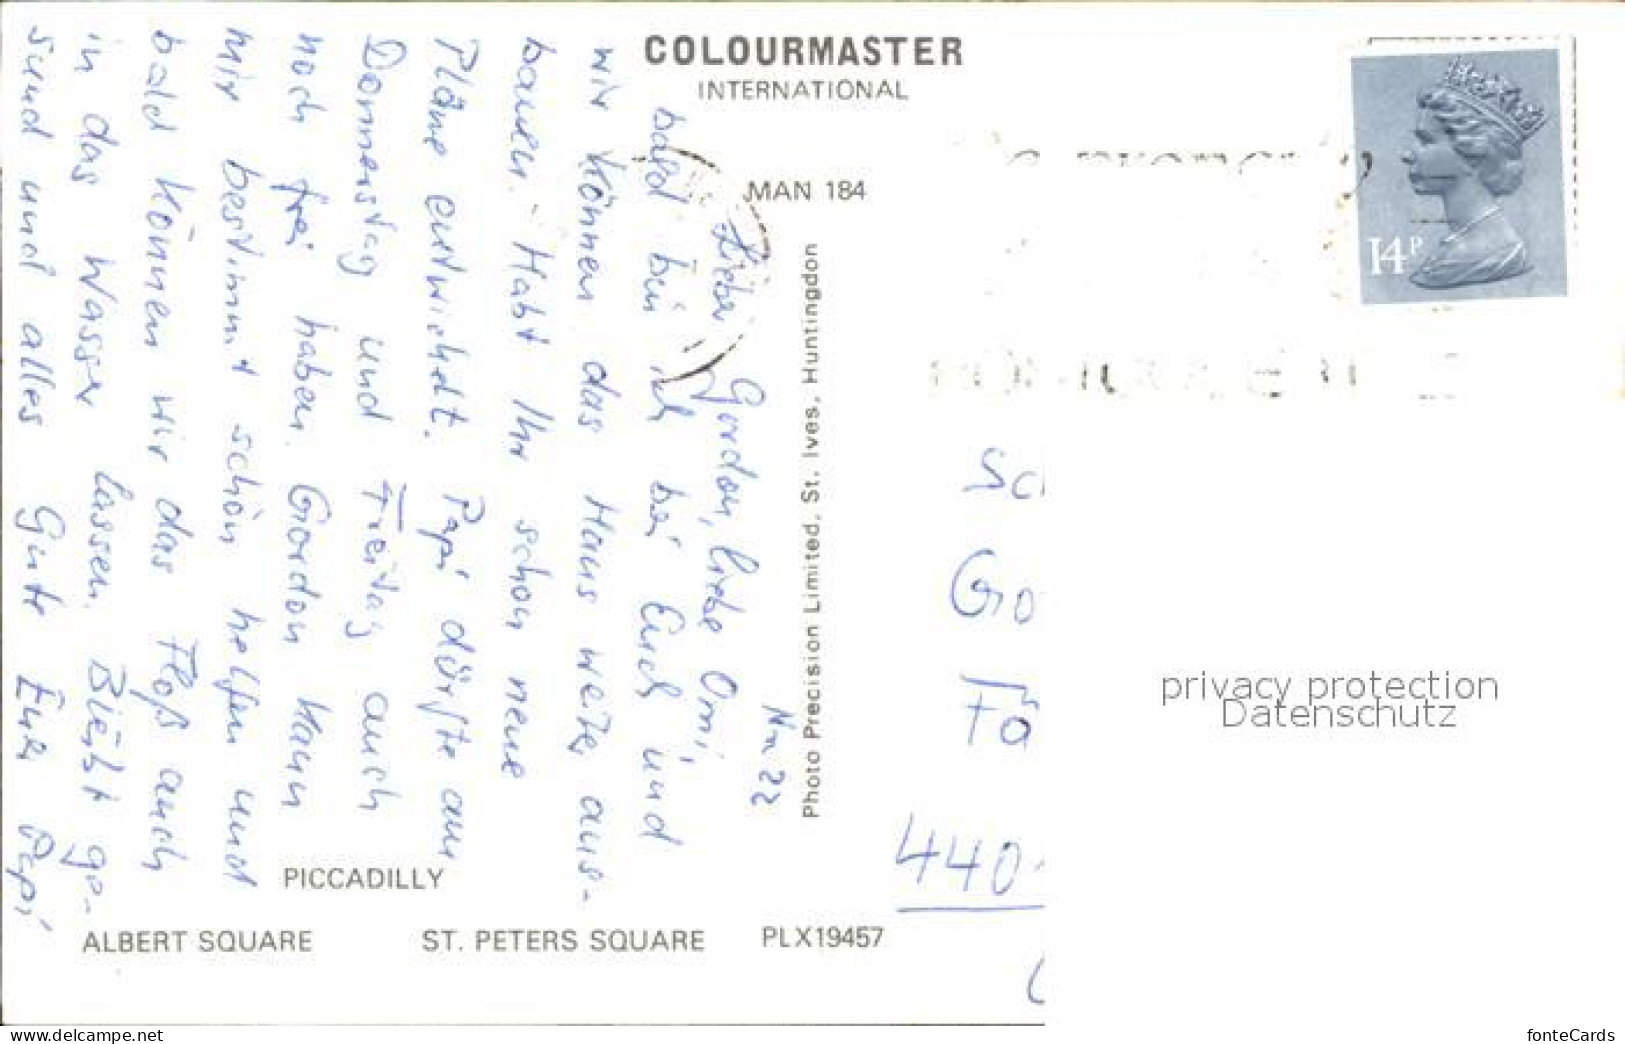 COLOURMASTER
INTERNATIONAL
MAN 184
14P
Photo Precision Limited, St. Ives, Huntingdon
Nr. 22
Lieber Gordon, liebe Omi,
bald bin ich bei Euch und
wir können das Haus weiter aus-
bauen. Habt Ihr schon neue
Pläne entwickelt. Papi dürfte am
Donnerstag und Freitag auch
noch frei haben. Gordon kann
mir bestimmt schön helfen und
bald können wir das Floß auch
in das Wasser lassen. Bleibt ge-
sund und alles Gute Euer Papi
PICCADILLY
ALBERT SQUARE
ST. PETERS SQUARE
PLX19457
Go
440
privacy protection
Datenschutz
www.delcampe.net
fonteCards